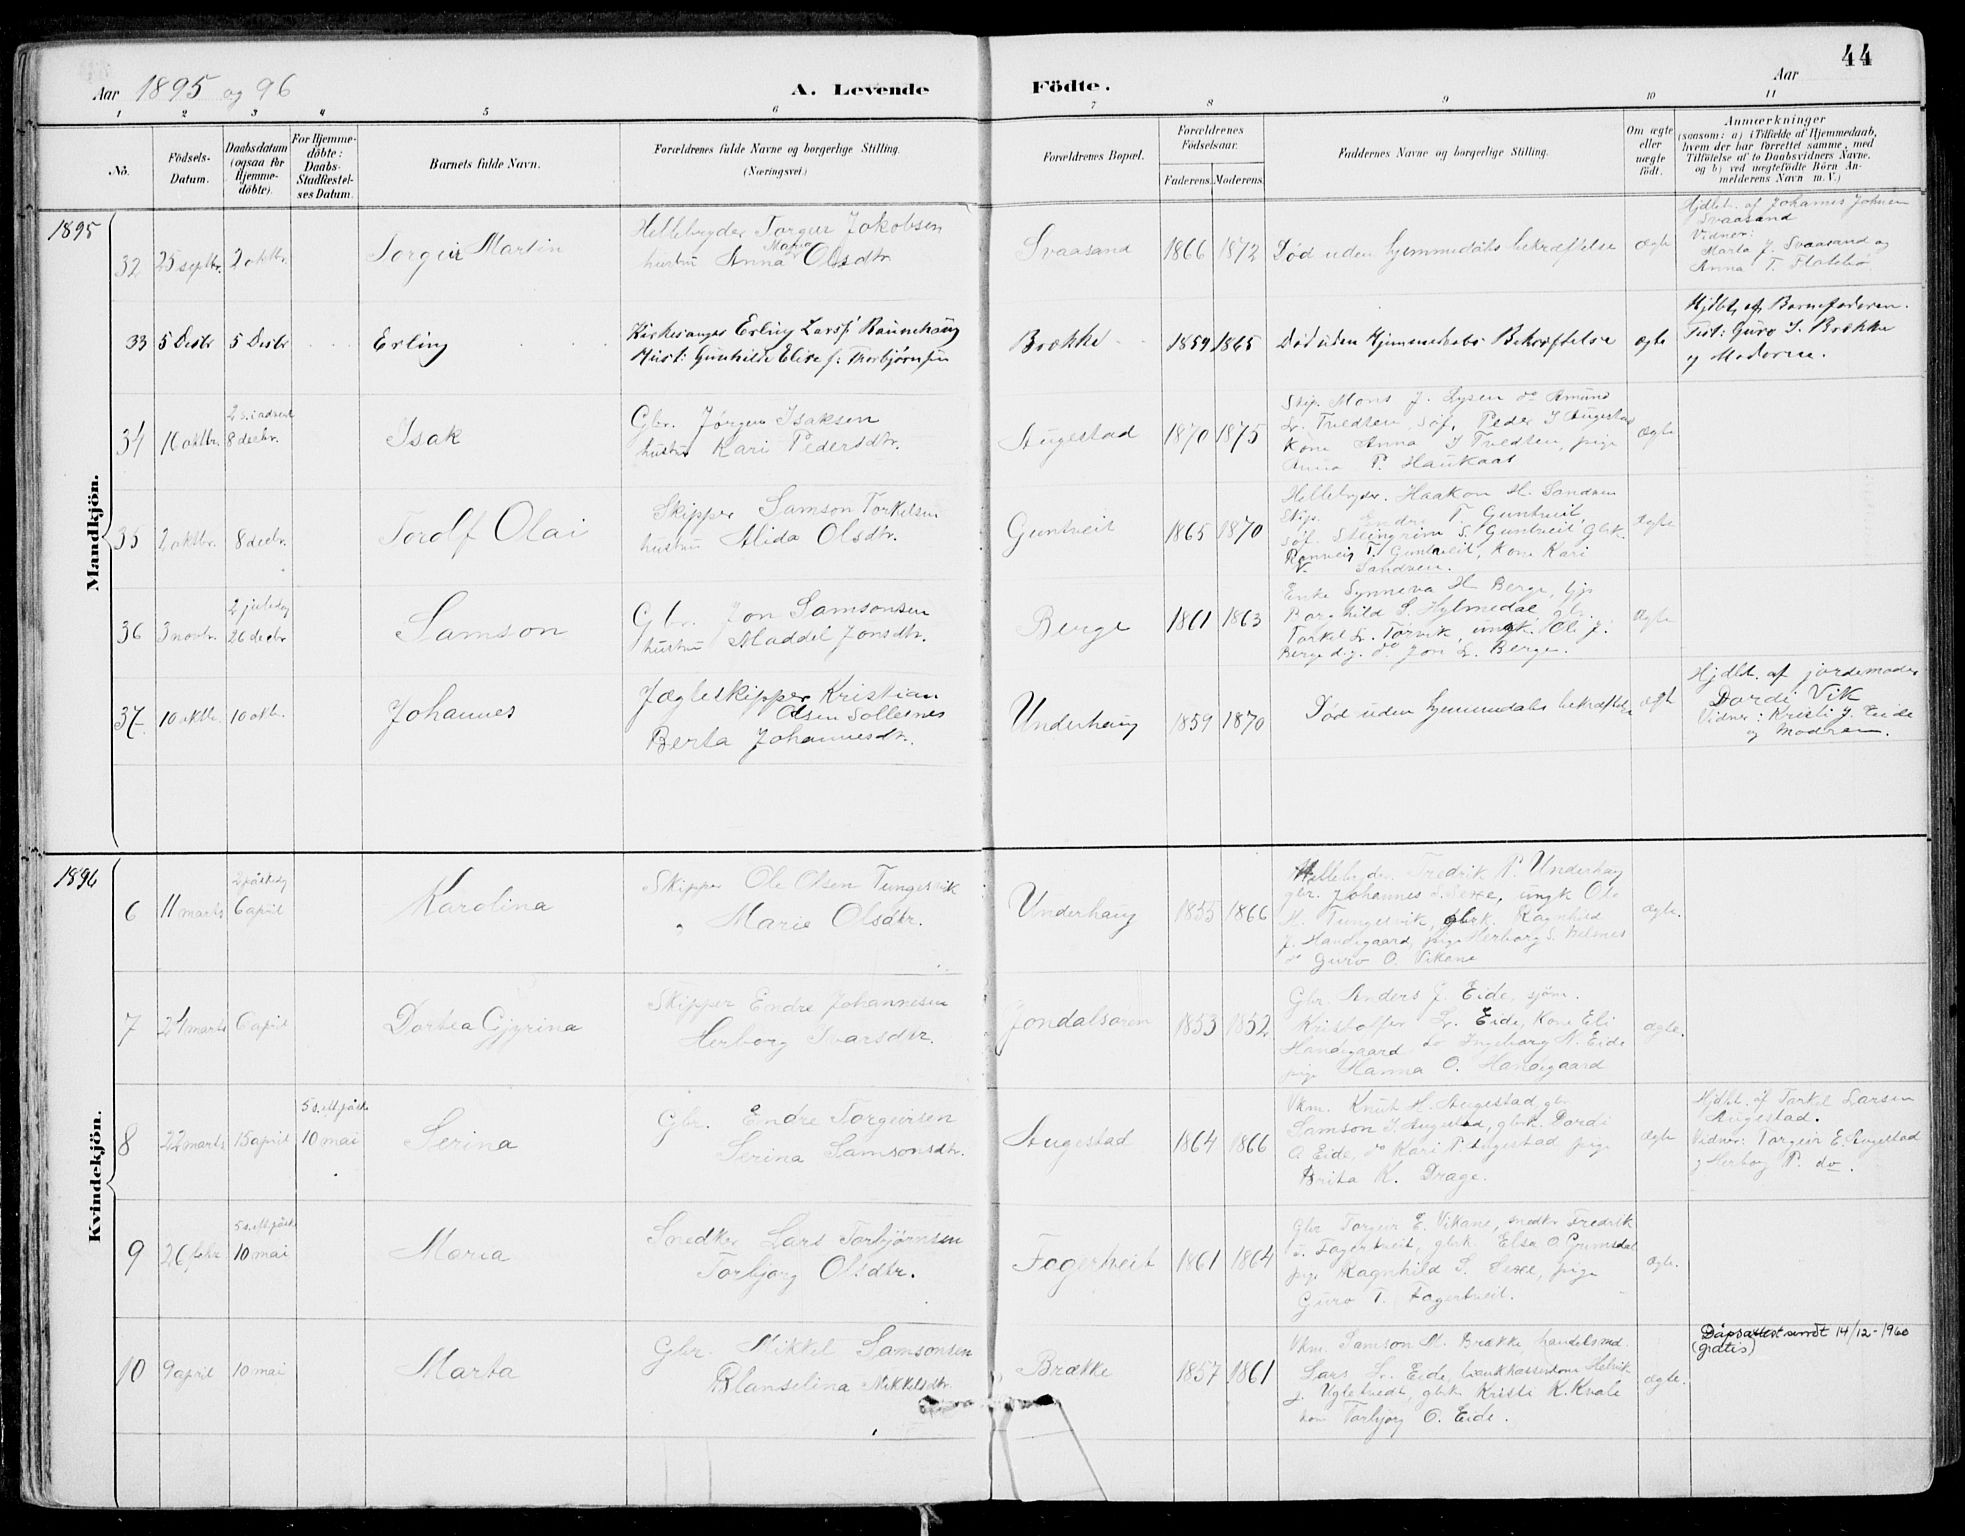 44
Aar 1895 og 96
A. Levende Födte.
Aar
1 2 3 4 5 6 7 8 9 10 11
No.
Födsels-Datum.
Daabsdatum (ogsaa for Hjemme-döbte).
For Hjemme-döbte: Daabs-Stadfæstel-ses Datum.
Barnets fulde Navn.
Forældrenes fulde Navne og borgerlige Stilling. (Næringsvei.)
Forældrenes Bopæl.
Forældrenes Födselsaar.
Faderens. Moderens.
Faddernes Navne og borgerlige Stilling.
Om ægte eller uægte födt.
Anmærkninger
(saasom: a) i Tilfælde af Hjemmedaab,
hvem der har forrettet samme, med
Tilföielse af to Daabsvidners Navne.
og b) ved uægtefödte Börn An-
melderens Navn m. V.)
Mandkjön.
1895
32 25 septbr. 2 oktbr. Torgeir Martin
Hellebryder Torgeir Jakobsen
hustru Anna Maria Olsdtr.
Svaasand 1866 1872 Död uden hjemmedåbs bekræftelse ægte
Hjdbt. af Johannes Johnsen
Svaasand
Vidner:
Marta J. Svaasand og
Anna T. Flatebø
33 5 Desbr 5 Desbr Erling
Kirkesanger Erling Larss. Raunehaug
Hust: Gunhilde Elise f. Thorbjørnsen
Brække 1859 1865 Död uden Hjemmedaabs Bekræftelse ægte
Hjdbt. af Barnefaderen.
Test: Guro S. Brække
og Moderen.
34 16 oktbr. 2 s. i advent 8 decbr. Isak
Gbr. Jørgen Isaksen
hustru Kari Pedersdtr.
Augestad 1870 1875
Skip. Mons J. Lysen do Amund
L. Tvedten, søf. Peder I Augestad
Kone Anna I Tvedten, pige
Anna P. Haukaas
ægte
35 2 oktbr. 8 decbr. Torolf Olai
Skipper Samson Torkelsen
hustru Alida Olsdtr.
Guntveit 1865 1870
Hellebryder. Haakon H. Sandven
Skip. Endre T Guntveit
søf. Steingrim S. Guntveit gbk.
Ranveig T. Guntveit, Kone Kari
V. Sandven.
ægte
36 3 novbr. 2 juledag 26 decbr Samson
Gbr. Jon Samsonsen
hustru Maddel Jonsdtr.
Berge 1861 1863
Enke Synneva H Berge, tjp
Borghild S. Hylmedal gbr.
Torkel L. Tørvik, ungk. Oli J.
Berge d.y. do Jon L. Berge.
ægte
37 10 oktbr. 10 oktb. Johannes
Jægteskipper Kristian
Olsen Solles­nes
Berta Johannesdtr.
Underhaug 1859 1870 Død uden hjemmedabs bekræftelse ægte
Hjdbt. af jordemoder
Dordi Vik
Vidner: Kristi J. Eide
og Modren.
Kvindekjön.
1896
6 11 marts 2 påskedg 6 april Karolina
Skipper Ole Olsen Tungesvik
" Marie Olsdtr.
Underhaug 1855 1866
Hellebryder. Fredrik N. Underhaug
gbr. Johannes S. Sexe, ungk Ole
H. Tungesvik, gbrk. Ragnhild
J. Handegaard, pige Herborg S. Velnes
do Guro O. Vikane
ægte.
7 24 marts 6 april Dortea Gjyrina
Skipper Endre Johannesen
Herborg Ivarsdtr.
Jondalsøren 1853 1852
Gbr. Anders J. Eide, sjøm.
Kristoffer L. Eide, Kone Eli
Handegaard do Ingeborg N. Eide
pige Hanna O. Handegaard
ægte.
8 22 marts 15 april 5 s. eft. påske 10 mai Serina
Gbr. Endre Torgeirsen
Serina Samsonsdtr.
Augestad 1864 1866
Vkm. Knut H. Augestad, gbr
Samson I Augestad, gbrk. Dordi
A Eide, do Kari P. Augestad pige
Brita K. Drage.
ægte
Hjdbt. af Torkel Larsen
Augestad.
Vidner: Torgeir E. Augestad
og Herborg P. do.
9 26 febr 5 s. eft. påske 10 mai Maria
Snedker Lars Torbjørnsen
Torbjørg Olsdtr.
Fagertveit 1861 1864
Gbr Torgeir E. Vikane, snedkr Fredrik
T. Fagertveit, gbrk. Elsa O Grimsdal
pige Ragnhild S. Sexe, pige
Guro T. Fagertveit.
ægte.
10 9 april 10 mai Marta
Gbr. Mikkel Samsonsen
Blanselina Mikkelsdtr.
Brække 1857 1861
Vkm. Samson M. Brække handelsmd.
Lars L. Eide, bankkasserer
J. Ugletvedt, gbrk. Kristi K. Kvale
kone Torbjørg O. Eide.
ægte.
Dåpsattest sendt 14/12-1960
(gratis)